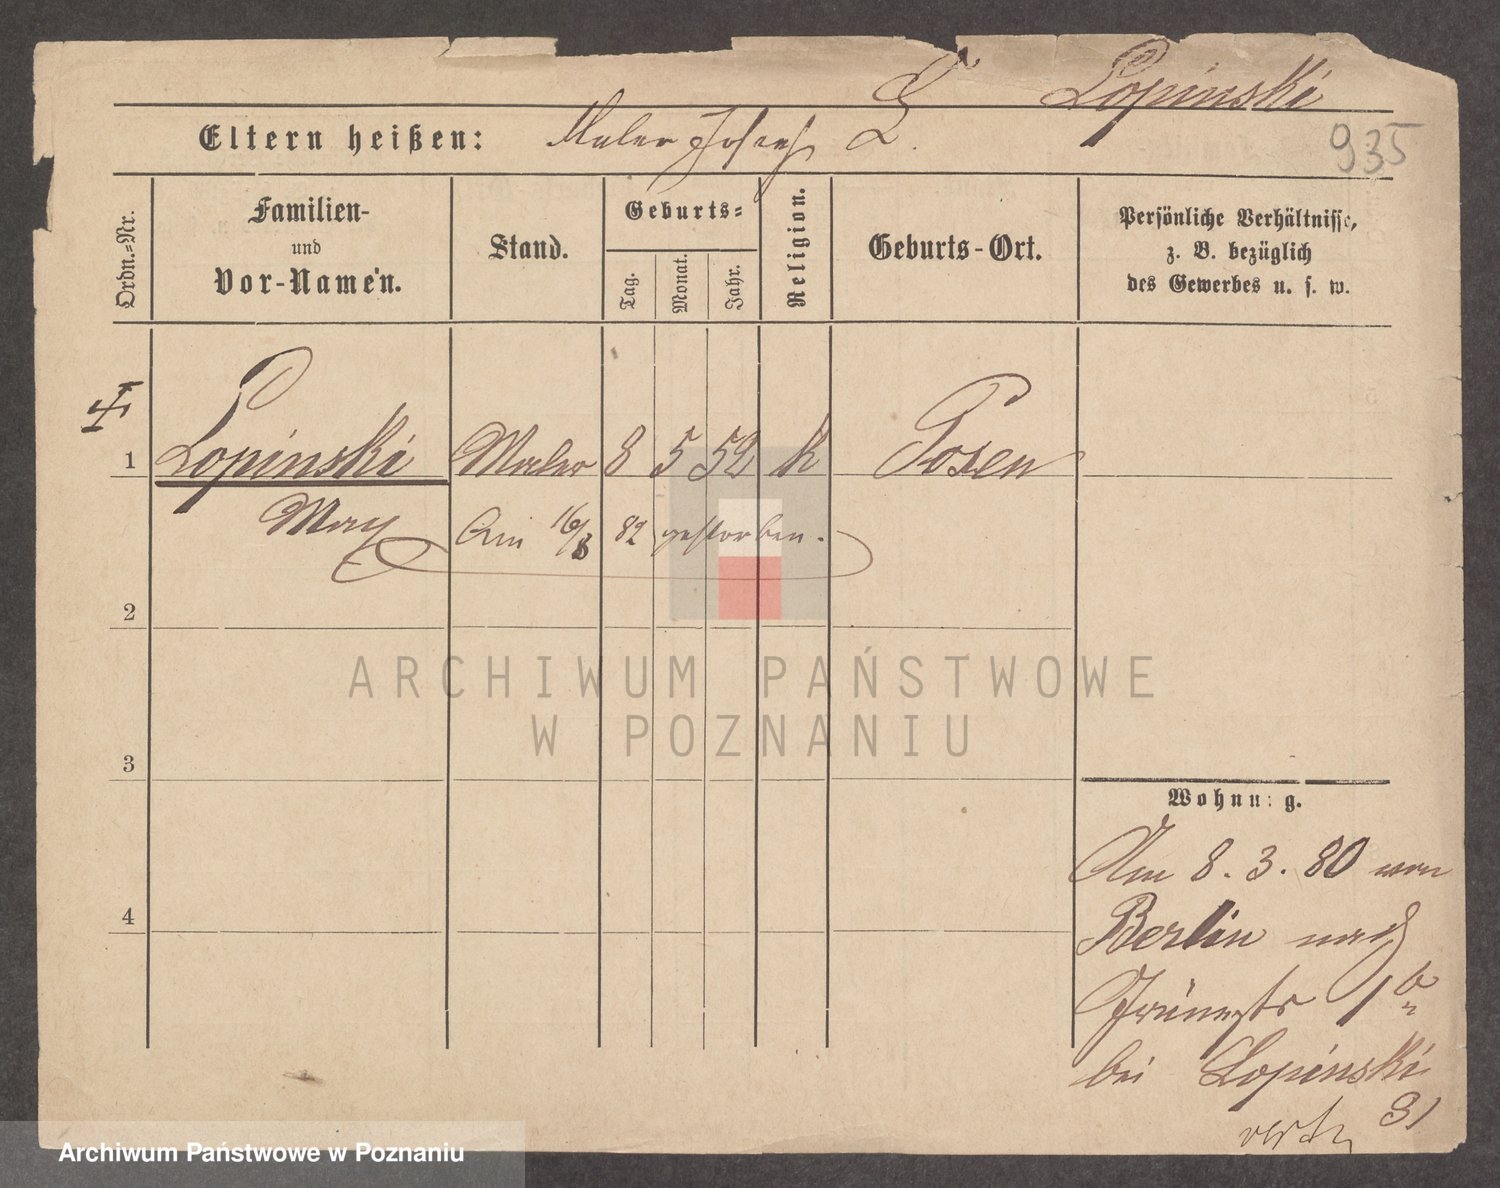 Lopinski
Eltern heißen: Maler Josef L.
935
Ordn.=Nr.
Familien-
und
Vor-Namen.
Stand.
Geburts=
Tag.
Monat.
Jahr.
Religion.
Geburts-Ort.
Persönliche Verhältnisse,
z. B. bezüglich
des Gewerbes u. s. w.
1 Lopinski Maler 8 5 52 k Posen
Max Am 16/8 82 gestorben.
2
ARCHIWUM PAŃSTWOWE
W POZNANIU
3
Wohnung.
4
Am 8. 3. 80 von
Berlin nach
Grünestr 1
bei Lopinski
31
Archiwum Państwowe w Poznaniu